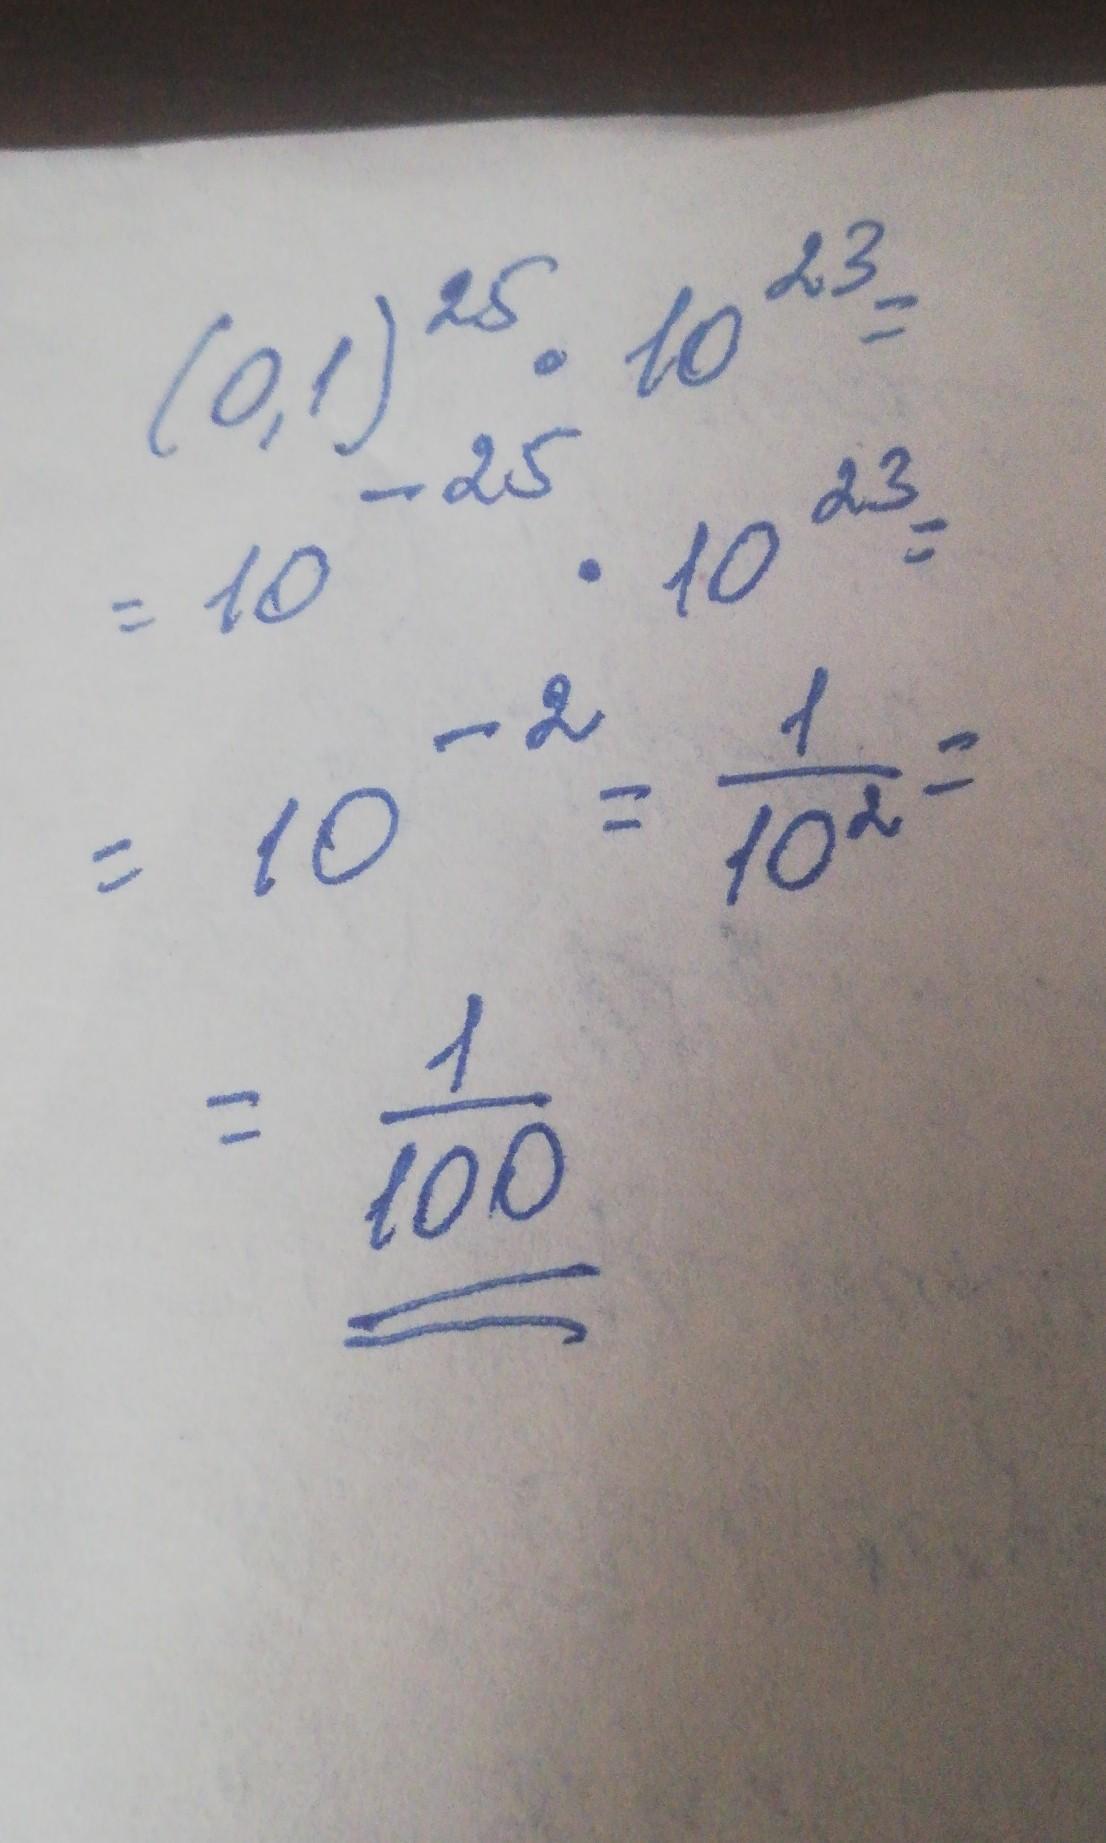 (0,1)^25 · 10^23 =
= 10^-25 · 10^23 =
= 10^-2 = 1/10^2 =
= 1/100